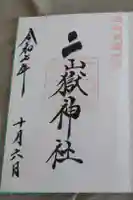 二山嶽神社
令和七年
十月六日